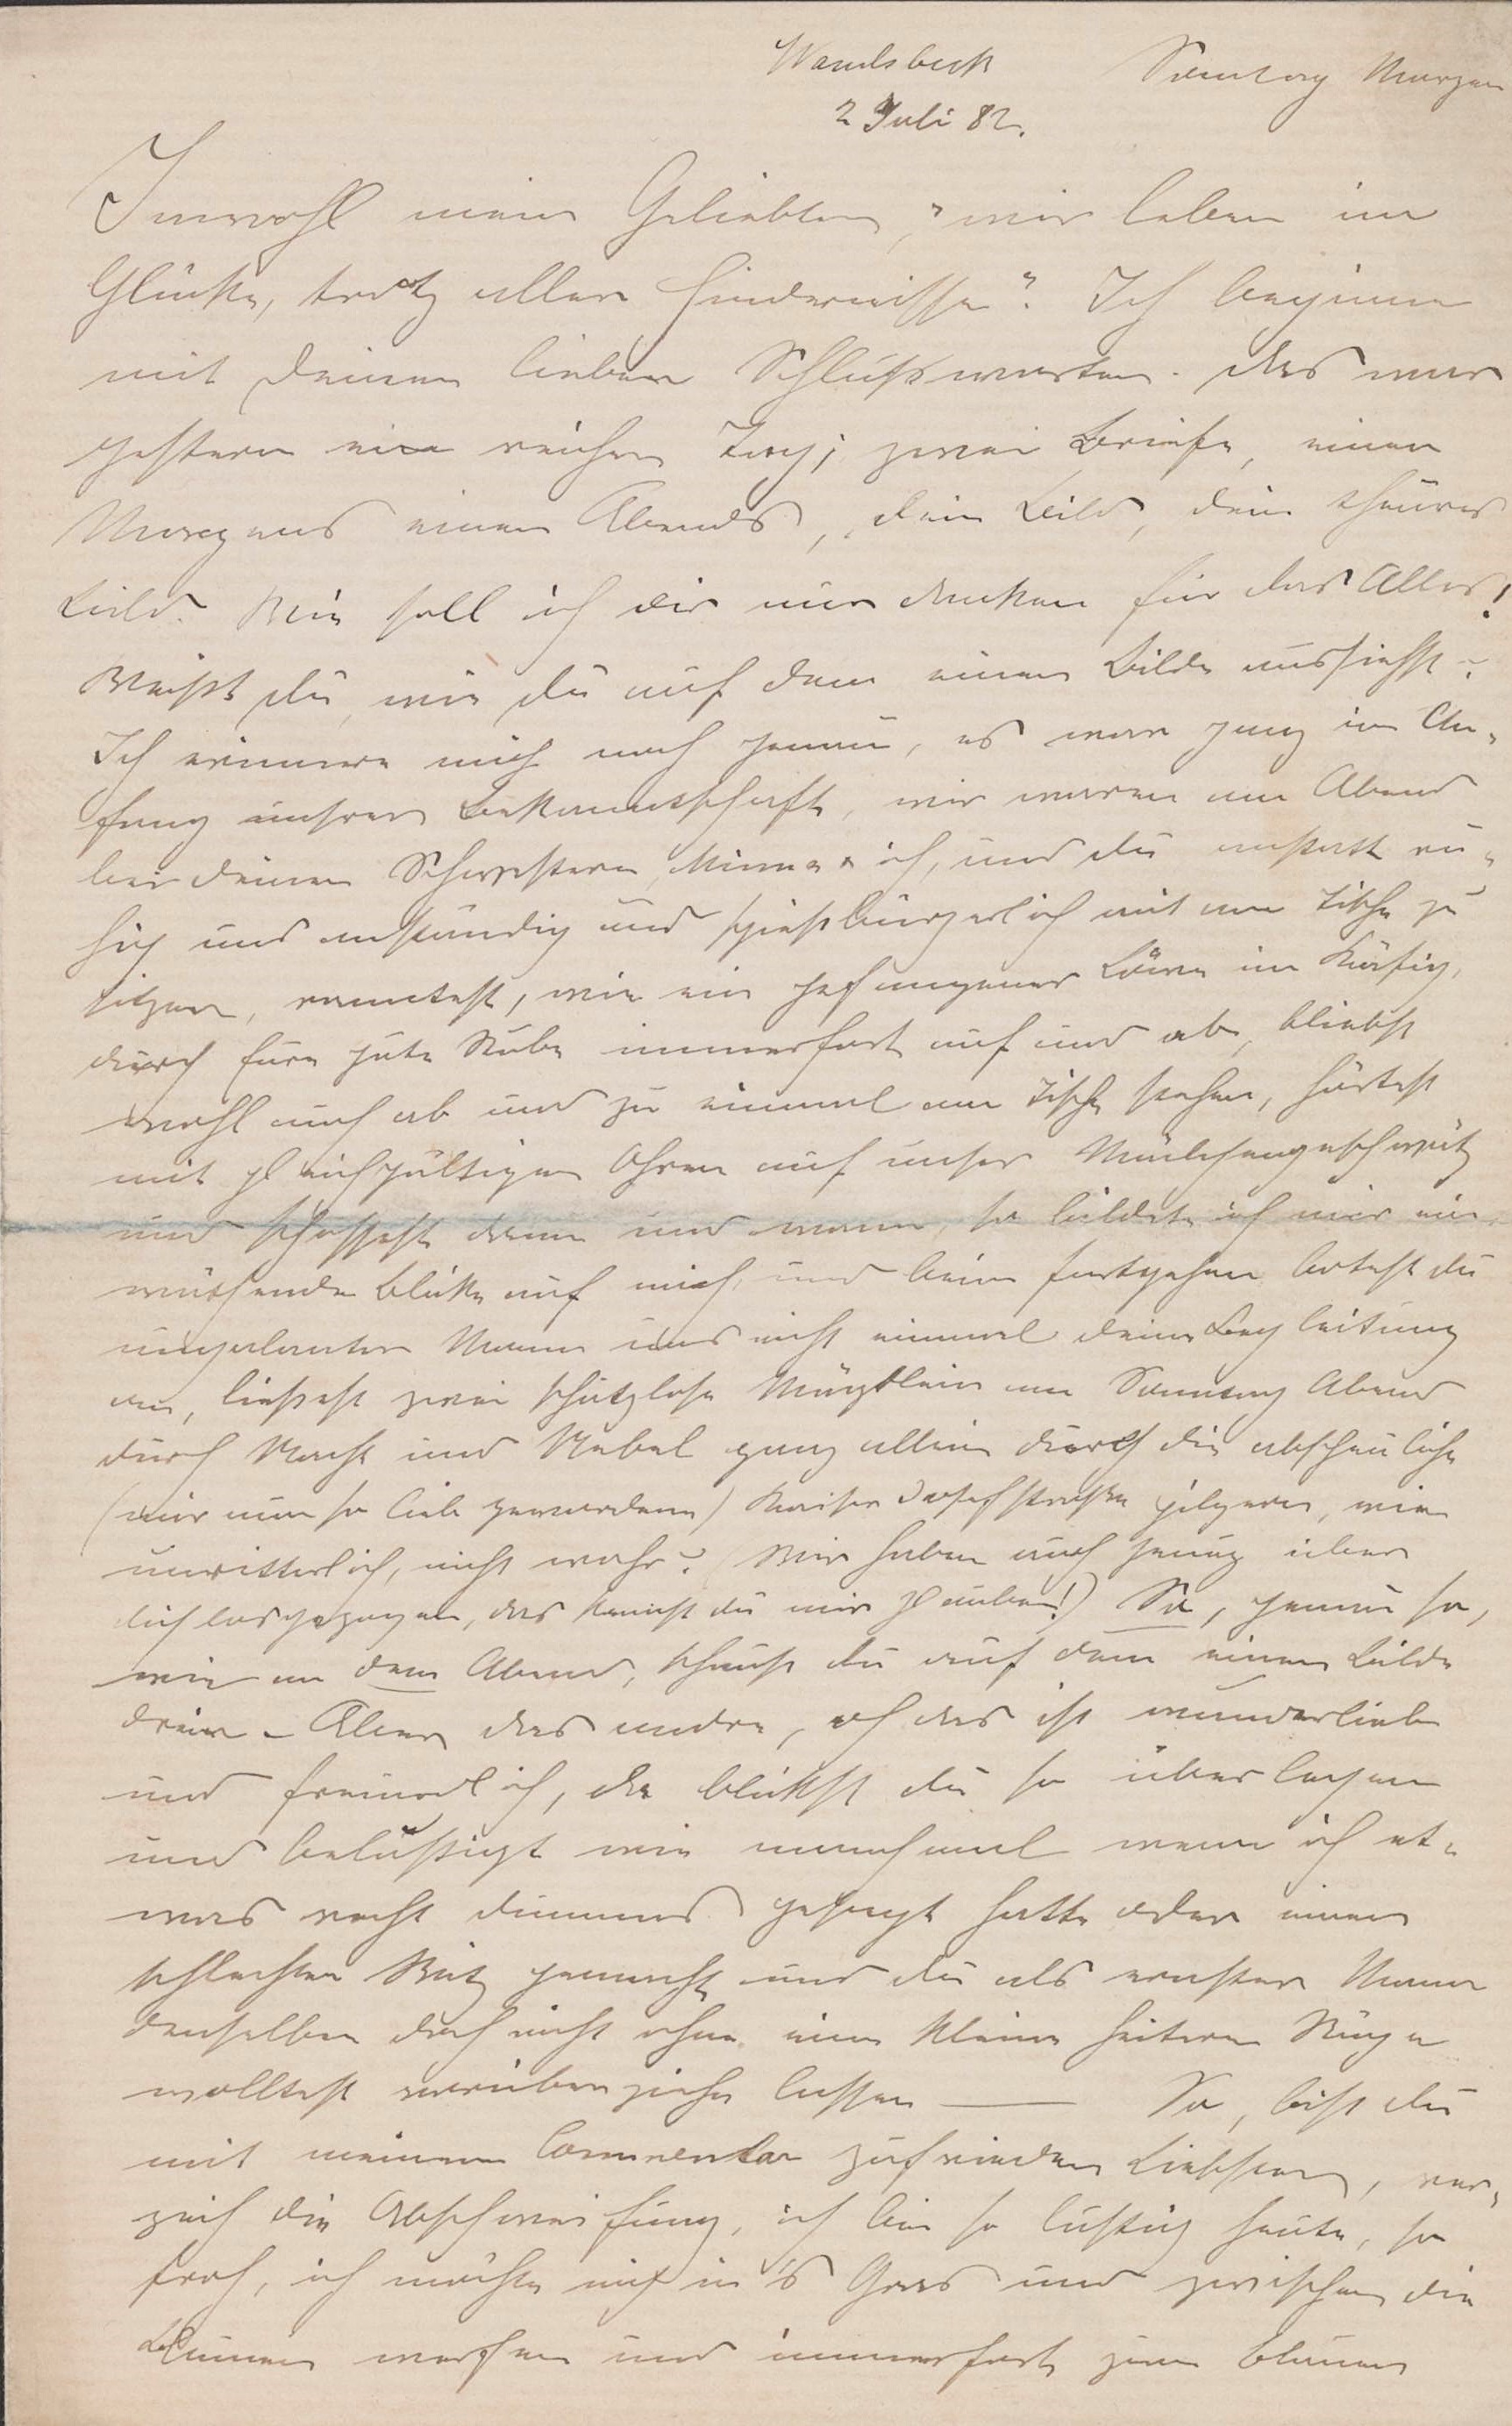 Wandsbeck Sonntag Morgen
2 Juli 82.
Jawohl mein Geliebter, „wir leben im
Glücke, trotz aller Hindernisse“. Ich beginne
mit Deinen lieben Schlußworten. Das war
gestern ein reicher Tag; zwei Briefe, einen
Morgens einen Abends, dein Bild, dein theures
Bild. Wie soll ich dir nur danken für das Alles!
Weißt du, wie du auf dem einen Bilde aussiehst?
Ich erinnere mich noch genau, es war ganz im An-
fang unsrer Bekanntschaft, wir waren am Abend
bei deinen Schwestern, Minna & ich, und du anstatt ru-
hig und anständig und spießbürgerlich mit am Tische zu
sitzen, ranntest, wie ein gefangener Löwe im Käfig,
durch Eure gute Stube immerfort auf und ab, bliebst
wohl auch ab und zu einmal am Tische stehen, hörtest
mit gleichgültigen Ohren auf unser Mädchengeschwätz
und schossest dann und wann, so bildete ich mir ein,
wüthende Blicke auf mich, und beim Fortgehen botest du
ungalanter Mann uns nicht einmal deine Begleitung
an, ließest zwei schutzlose Mägdlein am Sonntag Abend
durch Nacht und Nebel ganz allein durch die abscheuliche
(mir nun so lieb gewordene) Kaiser Josefstraße pilgern, wie
unritterlich, nicht wahr? (Wir haben auch genug über
dich losgezogen, das kannst du mir glauben!) So, genau so,
wie an dem Abend, schaust du auf dem einen Bilde
drein. Aber das andre, ach das ist wunderlieb
und freundlich, da blickst du so überlegen
und belustigt wie manchmal wenn ich et-
was recht dummes gesagt hatte oder einen
schlechten Witz gemacht und du als ernster Mann
denselben doch nicht ohne eine kleine heitere Rüge
wolltest vorüberziehen lassen — So, bist du
mit meinem Commentar zufrieden Liebster, ver-
zeih die Abschweifung, ich bin so lustig heute, so
froh, ich möchte mich in's Gras und zwischen die
Blumen werfen und immerfort zum blauen